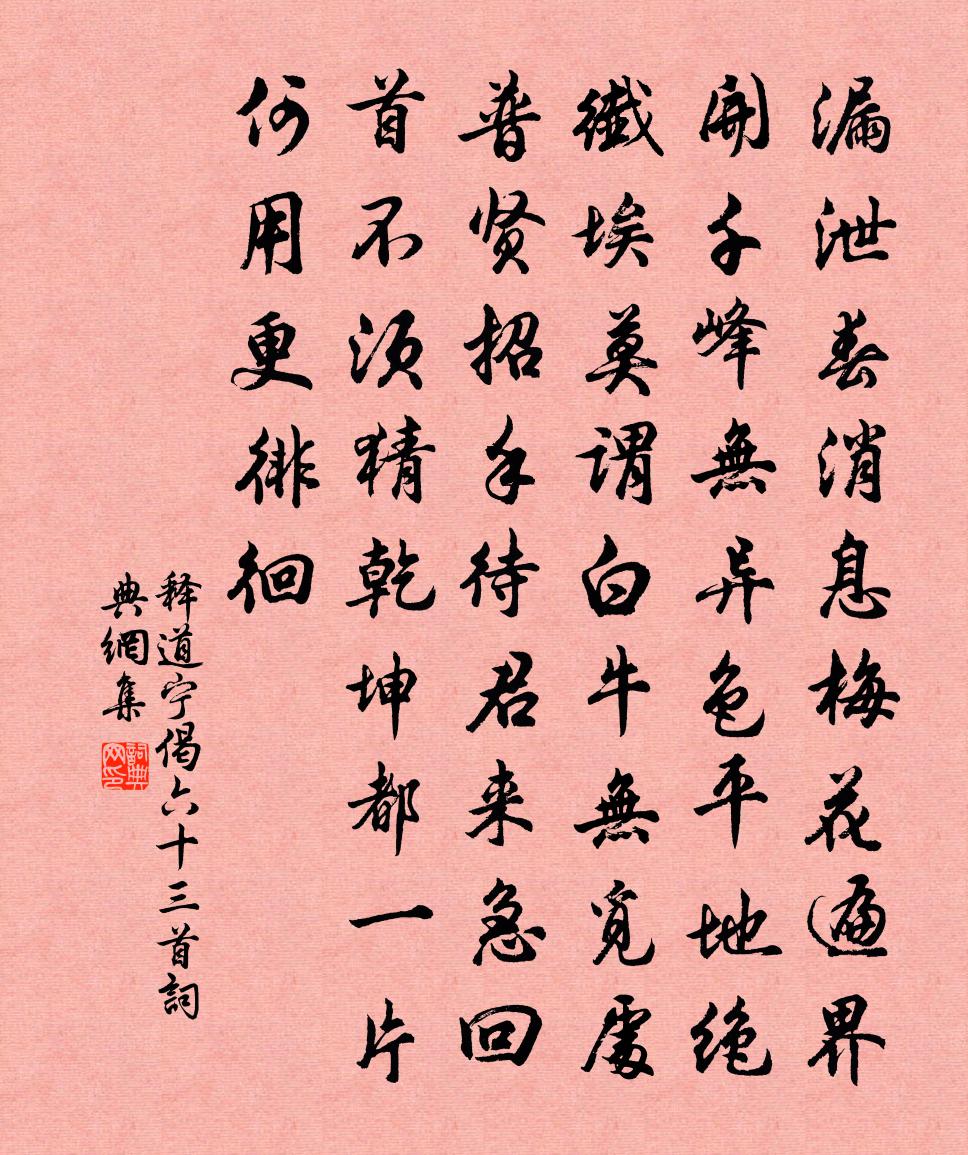 漏泄春消息梅花遍界
開千峰無异色平地绝
纖埃莫謂白牛無覓處
普贤招手待君来急回
首不须猜乾坤都一片
何用更徘徊
释道宁偈六十三首詞
典網集
詞典
网印